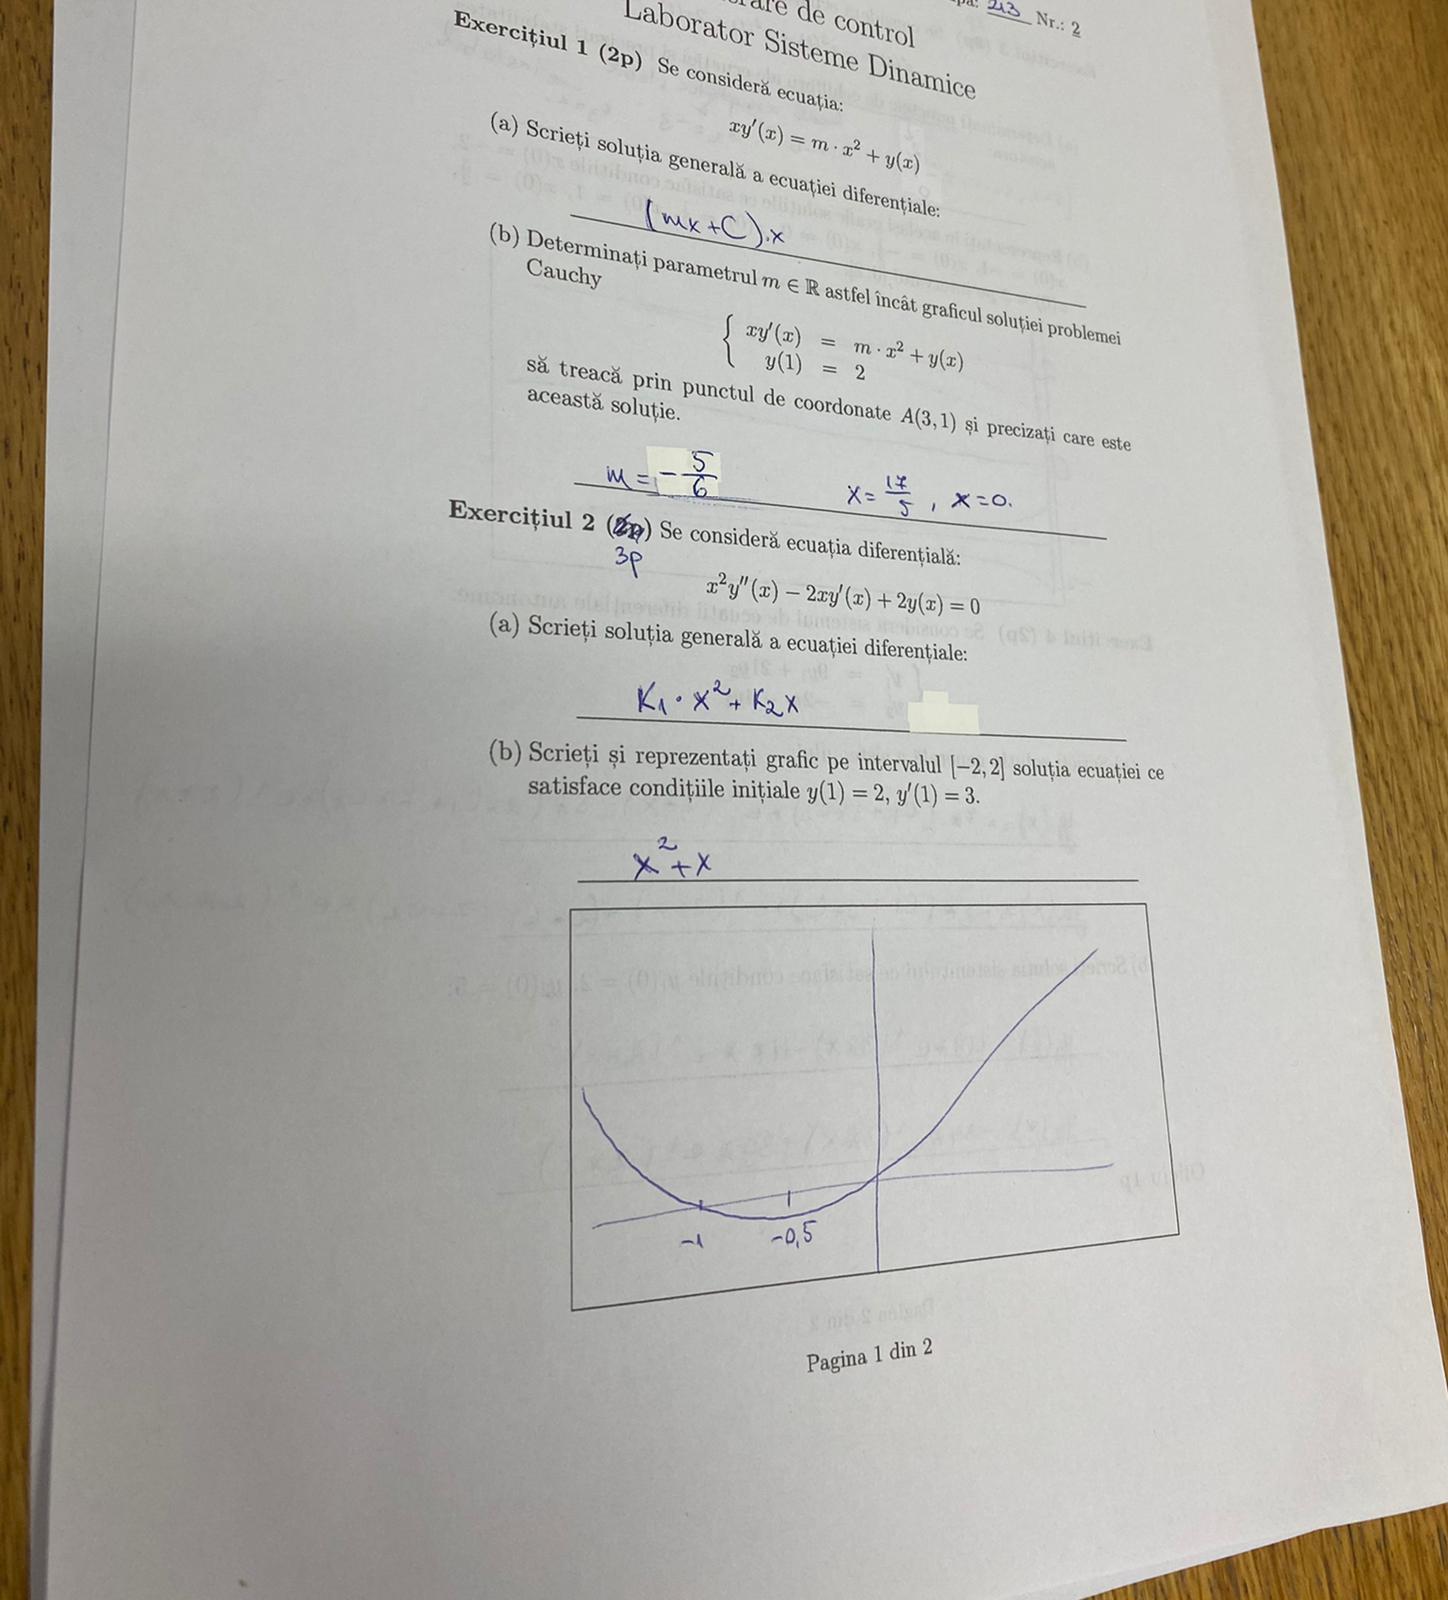 213 Nr.: 2
de control
Laborator Sisteme Dinamice
Exercițiul 1 (2p) Se consideră ecuația:
xy′(x) = m · x² + y(x)
(a) Scrieți soluția generală a ecuației diferențiale:
(mx+C).x
(b) Determinați parametrul m ∈ ℝ astfel încât graficul soluției problemei
Cauchy
{ xy′(x) = m · x² + y(x)
y(1) = 2
să treacă prin punctul de coordonate A(3, 1) și precizați care este
această soluție.
m = -5/6 x = 17/5 , x=0.
Exercițiul 2 (2p) Se consideră ecuația diferențială:
3p
x²y″(x) − 2xy′(x) + 2y(x) = 0
(a) Scrieți soluția generală a ecuației diferențiale:
K₁ · x² + K₂x
(b) Scrieți și reprezentați grafic pe intervalul [−2, 2] soluția ecuației ce
satisface condițiile inițiale y(1) = 2, y′(1) = 3.
x² + x
-1 -0,5
Pagina 1 din 2